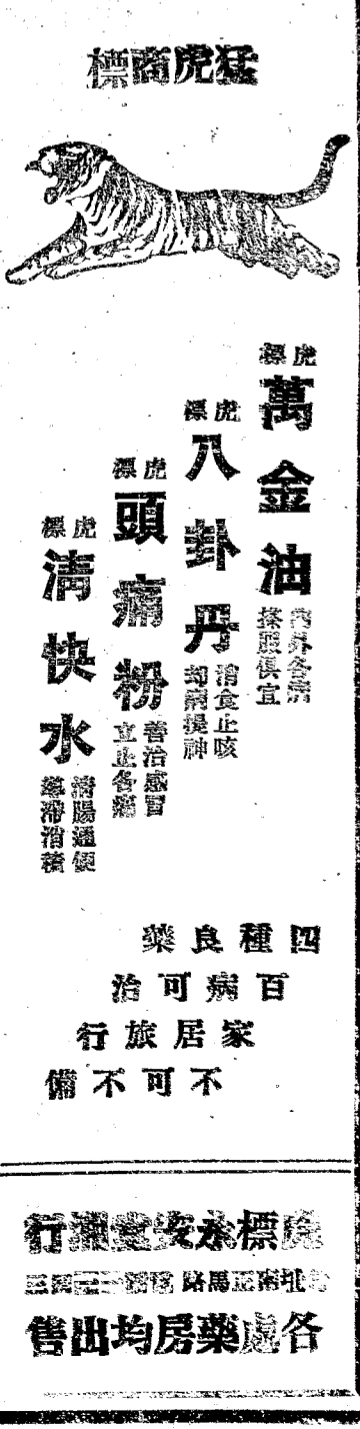 猛虎商標
虎標
萬金油
內外各病
搽服俱宜
虎標
八卦丹
消食止咳
却病提神
虎標
頭痛粉
善治感冒
立止各痛
虎標
清快水
清腸通便
導滯消積
四種良藥
百病可治
家居旅行
不可不備
虎標永安堂 行
址南正馬路
各處藥房均出售